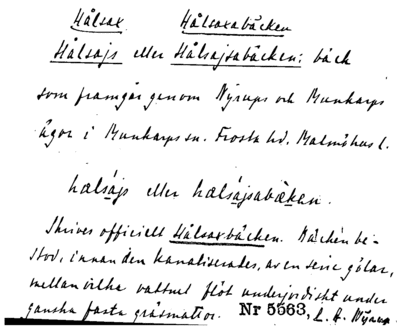 Hålsax Hålsaxabäcken
Hålsajs eller Hålsajsabäcken: bäck
som framgår genom Nyrups och Munkarps
ägor i Munkarps sn. Frosta hd. Malmöhus l.
hælsajs eller hælsajsabækan.
Skrives officiellt Hålsaxbäcken. Bäcken be-
stod, innan den kanaliserades, av en serie gölar,
mellan vilka vattnet flöt underjordiskt under
ganska fasta gräsmattor. Nr 5563, L. P. Nyrup